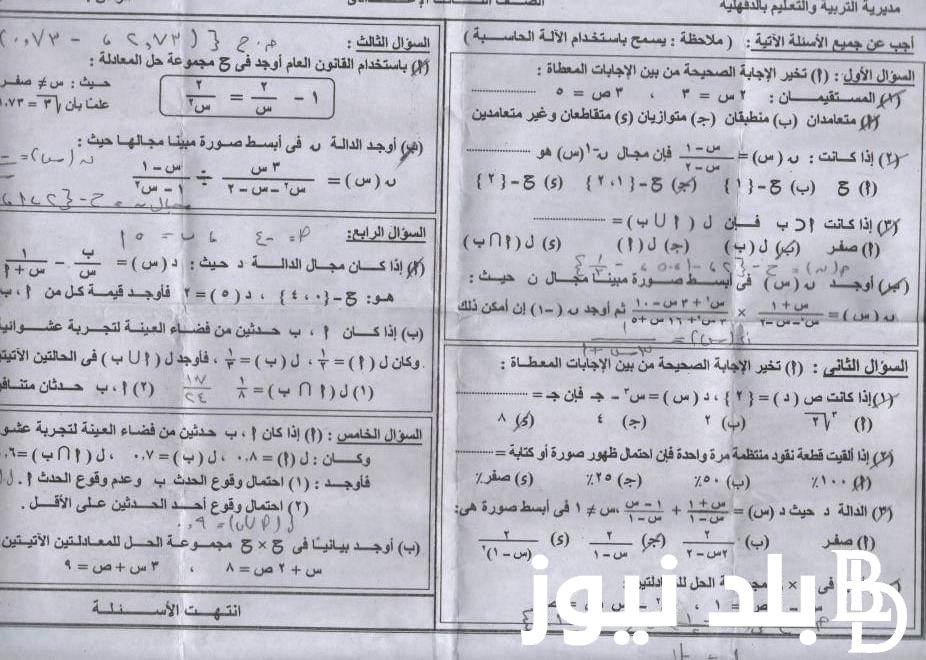 مديرية التربية والتعليم بالدقهلية
أجب عن جميع الأسئلة الآتية : ( ملاحظة : يسمح باستخدام الآلة الحاسبة )
السؤال الأول : (أ) تخير الإجابة الصحيحة من بين الإجابات المعطاة :
(١) المستقيمان : ٢ س = ٣ ، ٣ ص = ٥
(أ) متعامدان (ب) منطبقان (ج) متوازيان (د) متقاطعان وغير متعامدين
(٢) إذا كانت : ن (س) = (س - ١)/(س - ٢) فإن مجال ن⁻¹(س) هو ..........
(أ) ح (ب) ح - {١} (ج) ح - {١ ، ٢} (د) ح - {٢}
(٣) إذا كانت أ ⊂ ب فإن ل (أ ∪ ب) = ..........
(أ) صفر (ب) ل (ب) (ج) ل (أ) (د) ل (أ ∩ ب)
(ب) أوجد ن (س) فى أبسط صورة مبيناً مجال ن حيث :
ن (س) = (س + ١)/(س² - س - ٢) × (س² + ٣ س - ١٠)/(٣ س² + ١٦ س + ٥) ثم أوجد ن (- ١) إن أمكن ذلك
السؤال الثانى : (أ) تخير الإجابة الصحيحة من بين الإجابات المعطاة :
(١) إذا كانت ص (د) = {٢} ، د (س) = س³ - جـ فإن جـ = ..........
(أ) ∛٢ (ب) ٢ (ج) ٤ (د) ٨
(٢) إذا ألقيت قطعة نقود منتظمة مرة واحدة فإن احتمال ظهور صورة أو كتابة = ..........
(أ) ١٠٠٪ (ب) ٥٠٪ (ج) ٢٥٪ (د) صفر٪
(٣) الدالة د حيث د (س) = (س + ١)/(س - ١) + (١ - س)/(س - ١) ، س ≠ ١ فى أبسط صورة هى :
(أ) صفر (ب) ٢/(٢س - ٢) (ج) ٢/(س - ١) (د) ٢/(س - ١)²
بلد نيوز
السؤال الثالث :
(أ) باستخدام القانون العام أوجد فى ح مجموعة حل المعادلة :
١ - ٢/س = ٢/س² حيث : س ≠ صفر
علما بان √٣ = ١.٧٣
(ب) أوجد الدالة ن فى أبسط صورة مبينا مجالها حيث :
ن (س) = ٣ س/(س² - س - ٢) ÷ (س - ١)/(١ - س²)
السؤال الرابع :
(أ) إذا كان مجال الدالة د حيث : د (س) = ب/س - ١/(س + أ)
هو : ح - {٠ ، ٤} ، د (٥) = ٢ فأوجد قيمة كل من أ ، ب
(ب) إذا كان أ ، ب حدثين من فضاء العينة لتجربة عشوائية
وكان ل (أ) = ١/٢ ، ل (ب) = ١/٣ ، فأوجد ل (أ ∪ ب) فى الحالتين الآتيتين
(١) ل (أ ∩ ب) = ١/٨ ١٧/٢٤ (٢) أ ، ب حدثان متنافيان
السؤال الخامس : (أ) إذا كان أ ، ب حدثين من فضاء العينة لتجربة
وكان : ل (أ) = ٠.٨ ، ل (ب) = ٠.٧ ، ل (أ ∩ ب) = ٠.٦
فأوجد : (١) احتمال وقوع الحدث ب وعدم وقوع الحدث أ .
(٢) احتمال وقوع أحد الحدثين على الأقل .
(ب) أوجد بيانياً فى ح × ح مجموعة الحل للمعادلتين الآتيتين
س + ٢ ص = ٨ ، ٣ س + ص = ٩
انتهت الأسئلة